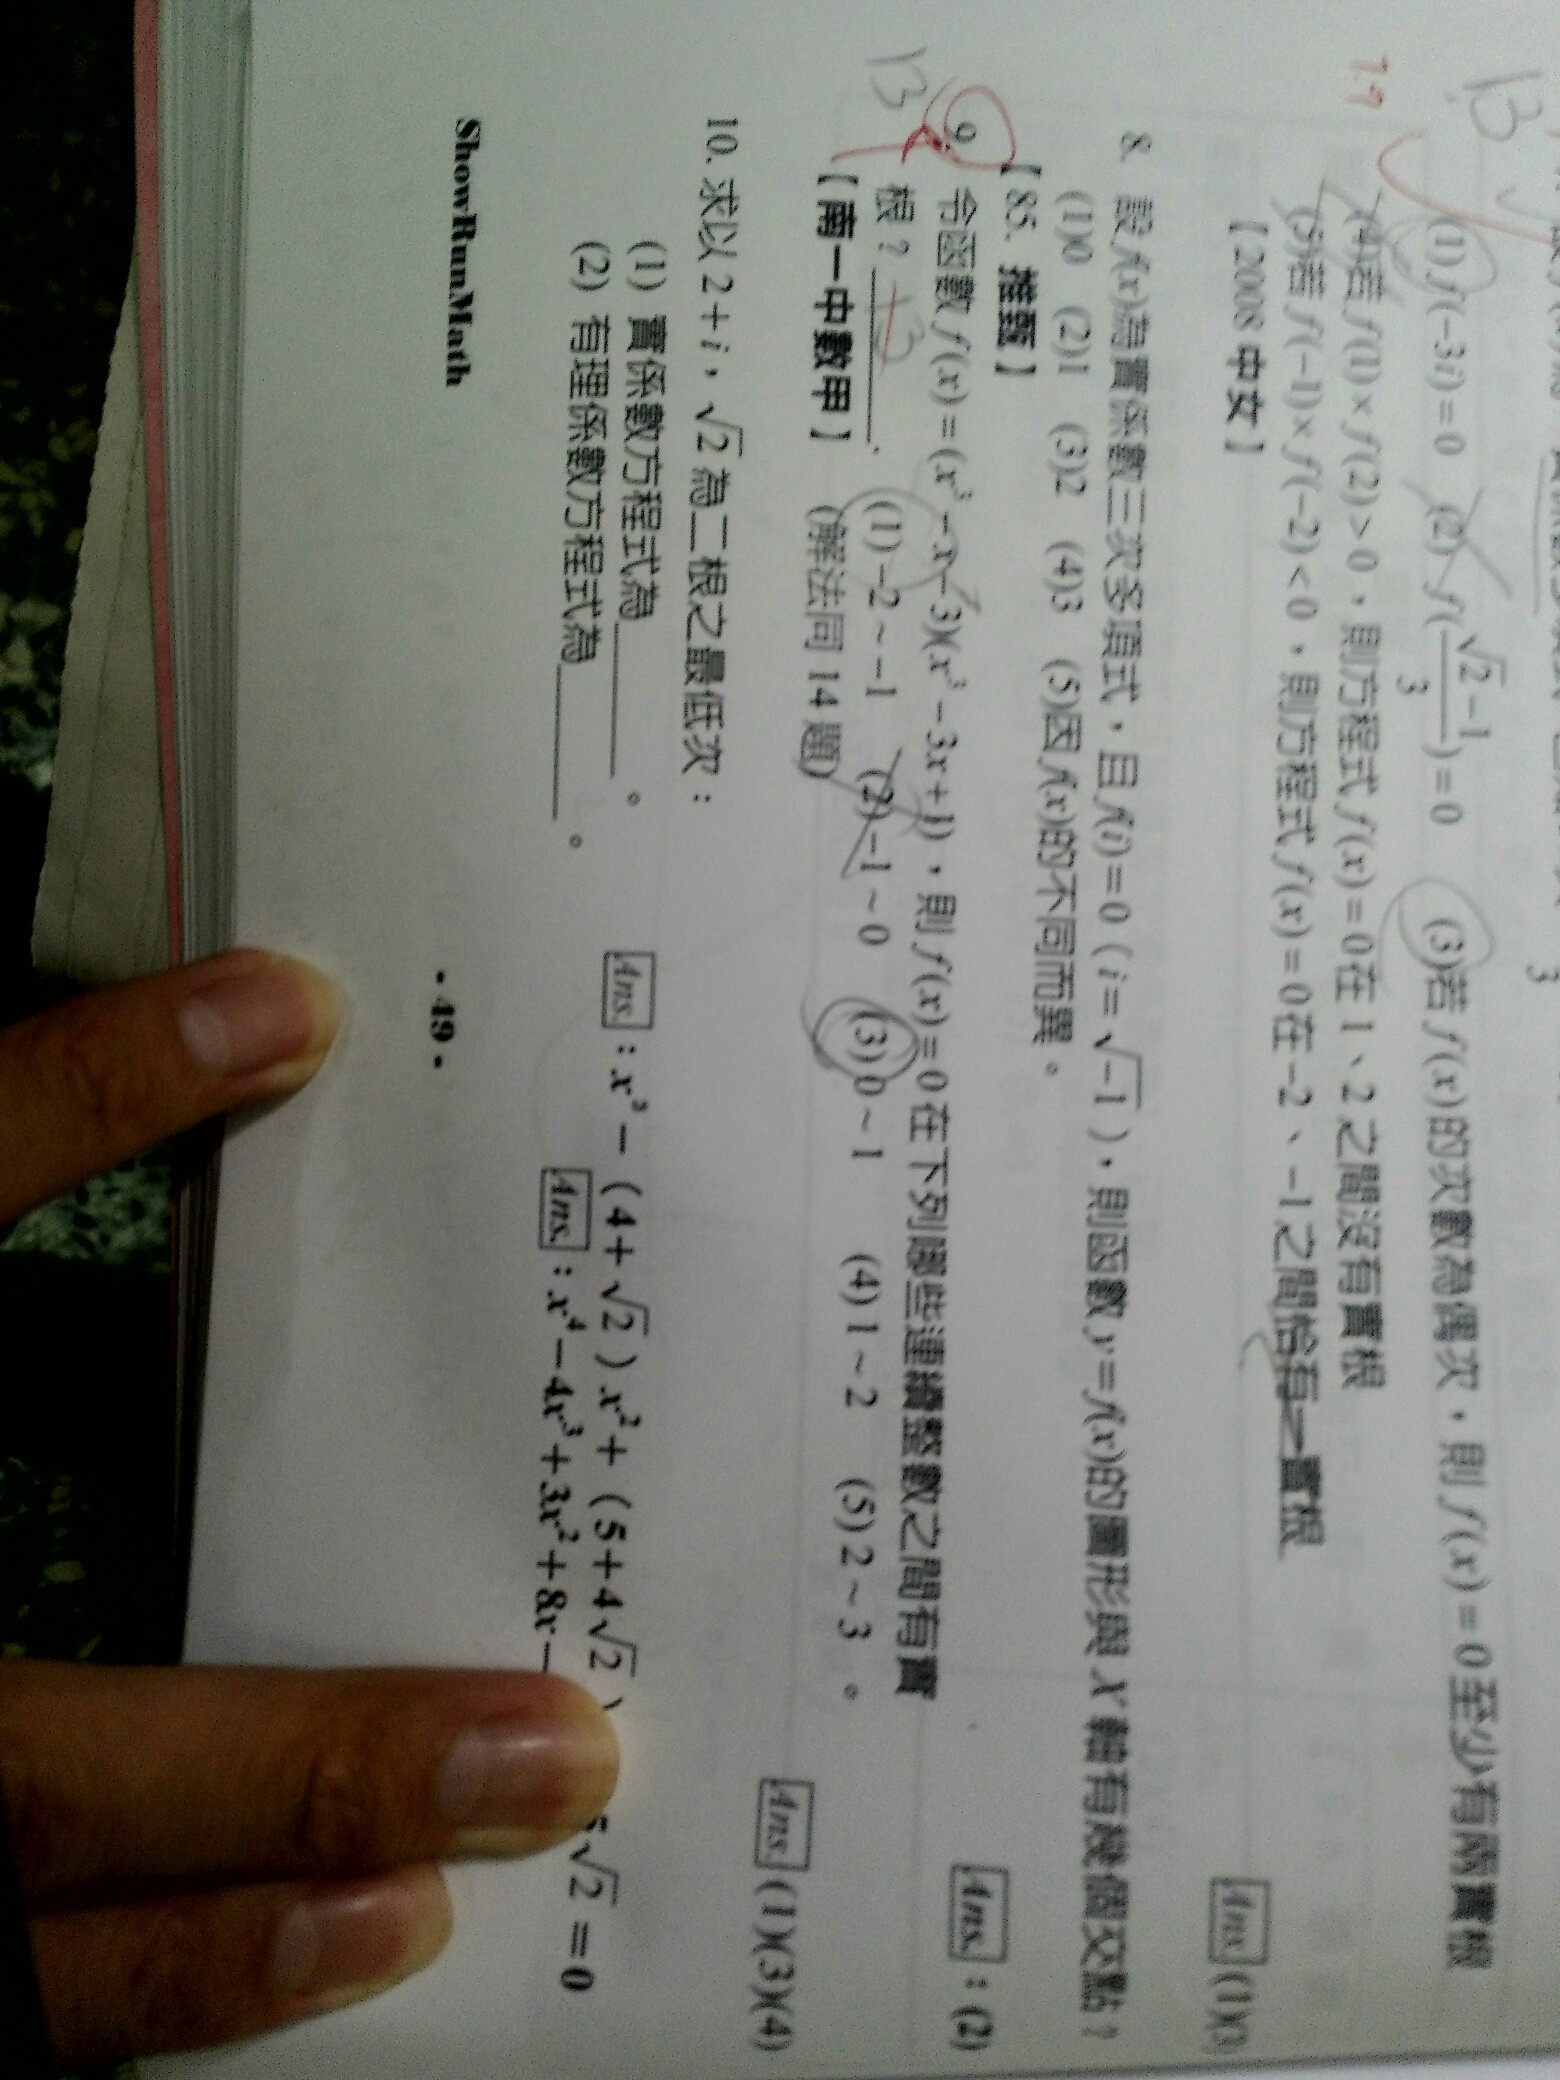 (1) f(-3i)=0 (2) f(\frac{\sqrt{2}-1}{3})=0 (3)若 f(x)的次數為偶次，則 f(x)=0至少有兩實根
(4)若 f(1)×f(2)>0，則方程式 f(x)=0在 1、2 之間沒有實根
(5)若 f(-1)×f(-2)<0，則方程式 f(x)=0在 -2、-1 之間恰有一實根
【2008 中女】
Ans (1)(3)
8. 設 f(x)為實係數三次多項式，且 f(i)=0（i=√-1），則函數 y=f(x)的圖形與 X 軸有幾個交點？
(1)0 (2)1 (3)2 (4)3 (5)因 f(x)的不同而異。
【85. 推甄】
Ans. : (2)
9. 令函數 f(x)=(x³-x-3)(x³-3x+1)，則 f(x)=0 在下列哪些連續整數之間有實
根？ 13 . (1) -2 ~ -1 (2) -1 ~ 0 (3) 0 ~ 1 (4) 1 ~ 2 (5) 2 ~ 3 。
【南一中數甲】 (解法同 14 題)
Ans. (1)(3)(4)
10. 求以 2+i，√2 為二根之最低次：
(1) 實係數方程式為 。 Ans. : x³-(4+√2)x²+(5+4√2) √2=0
(2) 有理係數方程式為 。 Ans. : x⁴-4x³+3x²+8x-
ShowRunMath - 49 -
13